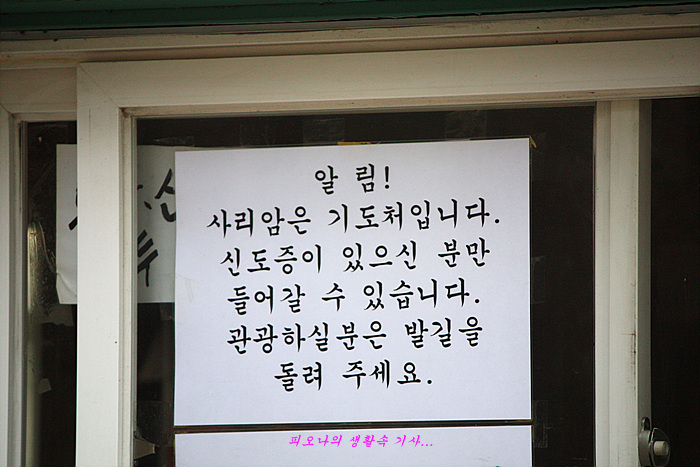 알 림!
사리암은 기도처입니다.
신도증이 있으신 분만
들어갈 수 있습니다.
관광하실분은 발길을
돌려 주세요.
피오나의 생활속 기사...